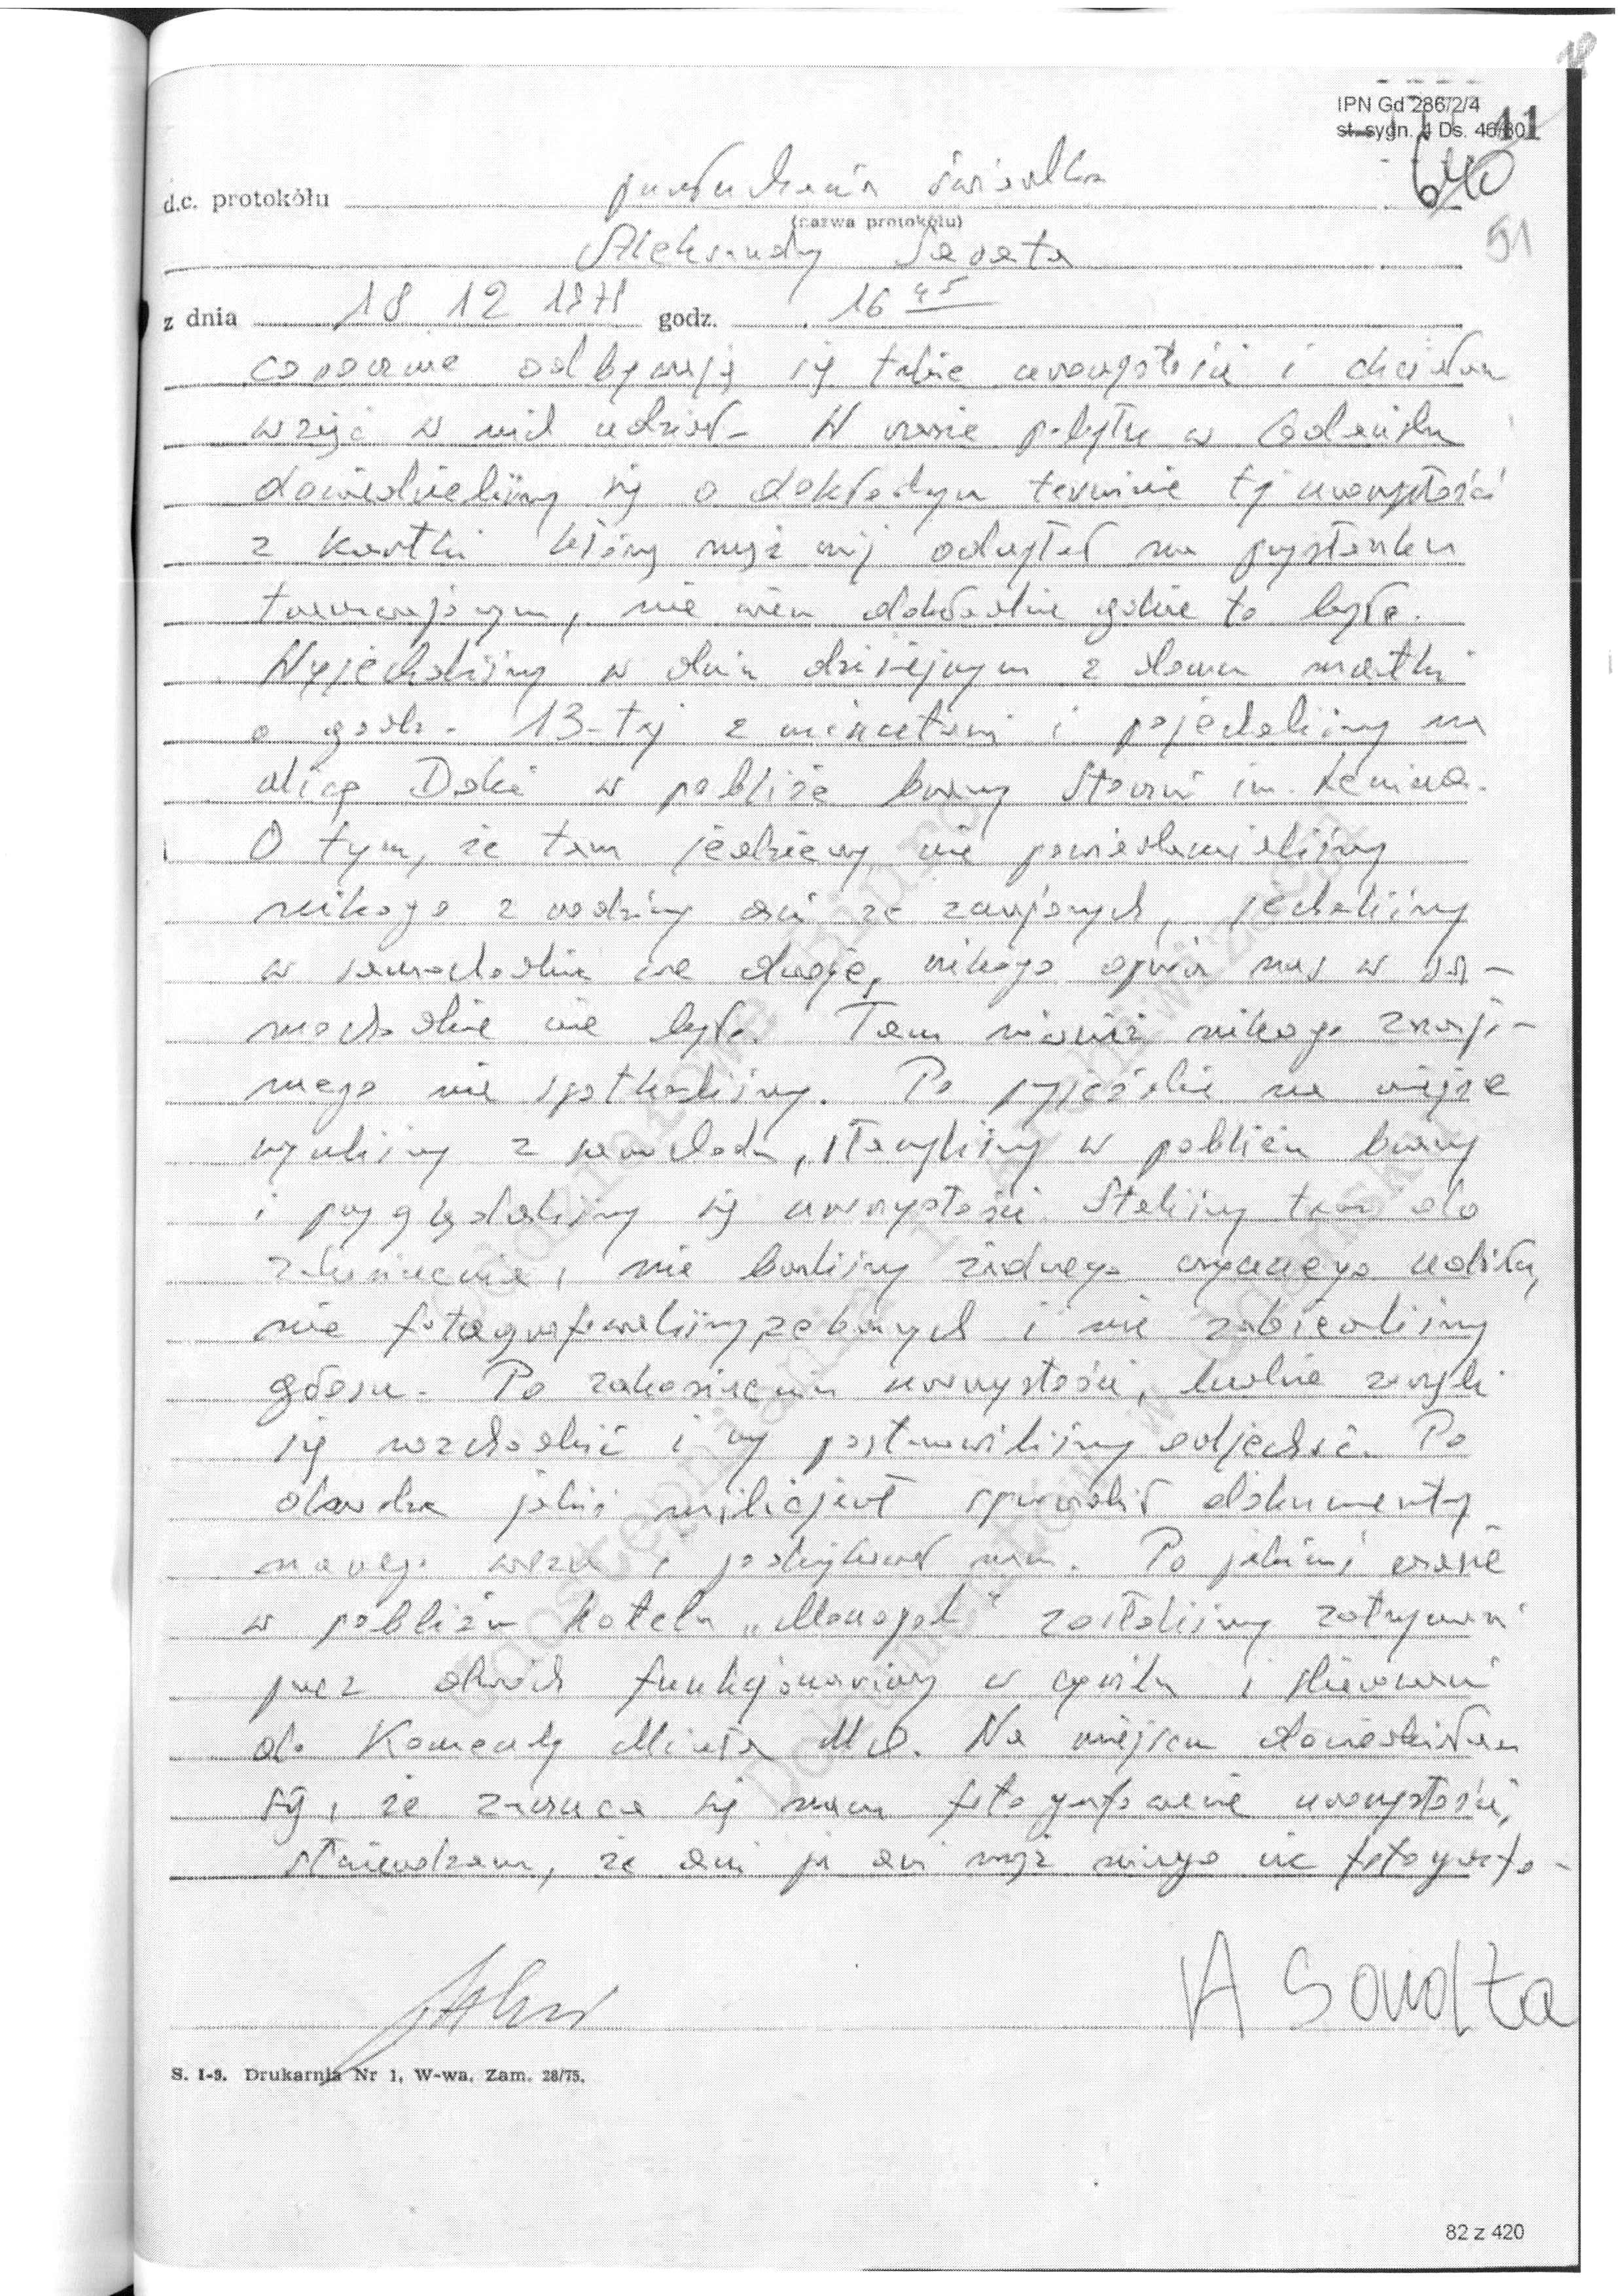 IPN Gd 286/2/4
st. sygn. 4 Ds. 46/80
11
640
51
d.c. protokółu przesłuchania świadka
(nazwa protokołu)
Aleksandry
z dnia 18 12 1978 godz. 16 45
corocznie odbywają się takie uroczystości i chciałam
wziąć w nich udział. W czasie pobytu w Gdańsku
dowiedzieliśmy się o dokładnym terminie tej uroczystości
z kartki którą mąż mój odczytał na przystanku
tramwajowym, nie wiem dokładnie gdzie to było.
Wyjechaliśmy w dniu dzisiejszym z domu matki
o godz. 13-tej z minutami i pojechaliśmy na
ulicę Doki w pobliże bramy Stoczni im. Lenina.
O tym, że tam jedziemy nie powiadomiliśmy
nikogo z rodziny ani ze znajomych, jechaliśmy
w samochodzie we dwoje, nikogo oprócz nas w sa-
mochodzie nie było. Tam również nikogo znajo-
mego nie spotkaliśmy. Po przyjeździe na miejsce
wyszliśmy z samochodu, stanęliśmy w pobliżu bramy
i przyglądaliśmy się uroczystości. Staliśmy tam do
zakończenia, nie braliśmy żadnego czynnego udziału,
nie fotografowaliśmy zebranych i nie zabieraliśmy
głosu. Po zakończeniu uroczystości, ludzie zaczęli
się rozchodzić i my postanowiliśmy odjechać. Po
drodze jakiś milicjant sprawdził dokumenty
naszego wozu i podziękował nam. Po jakimś czasie
w pobliżu hotelu „Monopol" zostaliśmy zatrzymani
przez dwóch funkcjonariuszy w cywilu i skierowani
do Komendy Miasta MO. Na miejscu dowiedziałam
się, że zarzuca się nam fotografowanie uroczystości,
stwierdzam, że ani ja ani mąż niczego nie fotografo-
A Sawołta
S. I-3. Drukarnia Nr 1, W-wa, Zam. 28/75.
82 z 420